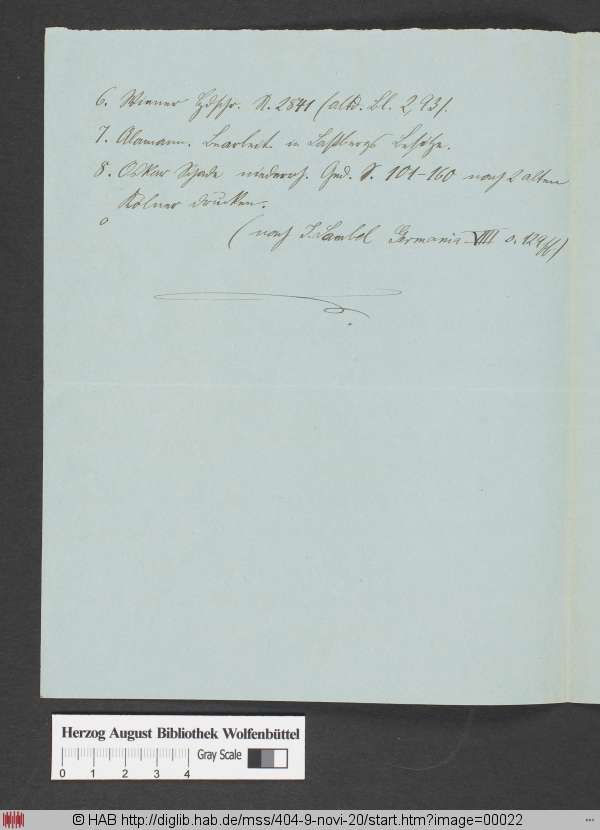 6. Wiener Hdschr. N. 2841 (altd. Bl. 293).
7. Alamann. Bearbeit. in Laßbergs Besitze.
8. Oskar Schade niederrh. Ged. S. 101-160 nach 2 alten
Kölner drucken.
(nach J. Lambel Germania VIII S. 129ff)
Herzog August Bibliothek Wolfenbüttel
0 1 2 3 4 Gray Scale
© HAB http://diglib.hab.de/mss/404-9-novi-20/start.htm?image=00022